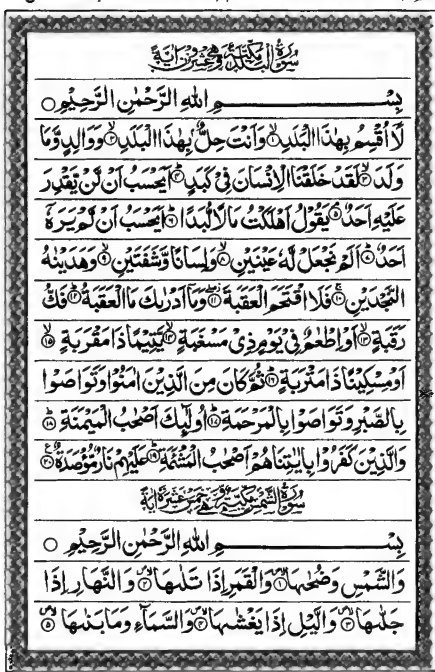 سُوۡرَةُ الۡبَلَدِ مَكِّيَّةٌ وَّهِيَ عِشۡرُوۡنَ اٰيَةً
بِسۡمِ اللهِ الرَّحۡمٰنِ الرَّحِيۡمِ ○
لَاۤ اُقۡسِمُ بِهٰذَا الۡبَلَدِ ۙ﴿۱﴾ وَاَنۡتَ حِلٌّۢ بِهٰذَا الۡبَلَدِ ۙ﴿۲﴾ وَوَالِدٍ وَّمَا
وَلَدَ ۙ﴿۳﴾ لَقَدۡ خَلَقۡنَا الۡاِنۡسَانَ فِىۡ كَبَدٍ ؕ﴿۴﴾ اَيَحۡسَبُ اَنۡ لَّنۡ يَّقۡدِرَ
عَلَيۡهِ اَحَدٌ ۘ﴿۵﴾ يَقُوۡلُ اَهۡلَكۡتُ مَالًا لُّبَدًا ؕ﴿۶﴾ اَيَحۡسَبُ اَنۡ لَّمۡ يَرَهٗۤ
اَحَدٌ ؕ﴿۷﴾ اَلَمۡ نَجۡعَلۡ لَّهٗ عَيۡنَيۡنِ ۙ﴿۸﴾ وَلِسَانًا وَّشَفَتَيۡنِ ۙ﴿۹﴾ وَهَدَيۡنٰهُ
النَّجۡدَيۡنِ ۚ﴿۱۰﴾ فَلَا اقۡتَحَمَ الۡعَقَبَةَ ۖ﴿۱۱﴾ وَمَاۤ اَدۡرٰٮكَ مَا الۡعَقَبَةُ ؕ﴿۱۲﴾ فَكُّ
رَقَبَةٍ ۙ﴿۱۳﴾ اَوۡ اِطۡعٰمٌ فِىۡ يَوۡمٍ ذِىۡ مَسۡغَبَةٍ ۙ﴿۱۴﴾ يَّتِيۡمًا ذَا مَقۡرَبَةٍ ۙ﴿۱۵﴾
اَوۡ مِسۡكِيۡنًا ذَا مَتۡرَبَةٍ ؕ﴿۱۶﴾ ثُمَّ كَانَ مِنَ الَّذِيۡنَ اٰمَنُوۡا وَتَوَاصَوۡا
بِالصَّبۡرِ وَتَوَاصَوۡا بِالۡمَرۡحَمَةِ ؕ﴿۱۷﴾ اُولٰٓٮِٕكَ اَصۡحٰبُ الۡمَيۡمَنَةِ ؕ﴿۱۸﴾
وَالَّذِيۡنَ كَفَرُوۡا بِاٰيٰتِنَا هُمۡ اَصۡحٰبُ الۡمَشۡئَمَةِ ؕ﴿۱۹﴾ عَلَيۡهِمۡ نَارٌ مُّؤۡصَدَةٌ ﴿۲۰﴾
سُوۡرَةُ الشَّمۡسِ مَكِّيَّةٌ وَّهِيَ خَمۡسَ عَشَرَةَ اٰيَةً
بِسۡمِ اللهِ الرَّحۡمٰنِ الرَّحِيۡمِ ○
وَالشَّمۡسِ وَضُحٰٮهَا ۙ﴿۱﴾ وَالۡقَمَرِ اِذَا تَلٰٮهَا ۙ﴿۲﴾ وَالنَّهَارِ اِذَا
جَلّٰٮهَا ۙ﴿۳﴾ وَالَّيۡلِ اِذَا يَغۡشٰٮهَا ۙ﴿۴﴾ وَالسَّمَآءِ وَمَا بَنٰٮهَا ۙ﴿۵﴾